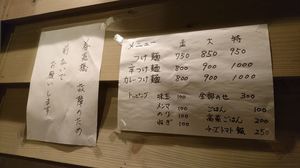 券売機
故障のため
前払いで
お願いします
メニュー 並 大 特
つけ麺 750 850 950
辛つけ麺 800 900 1000
カレーつけ麺 800 900 1000
トッピング 味玉 100 全部のせ 300
メンマ 100 ごはん 100
のり 100 高菜ごはん 200
ねぎ 100 チーズトマト飯 250